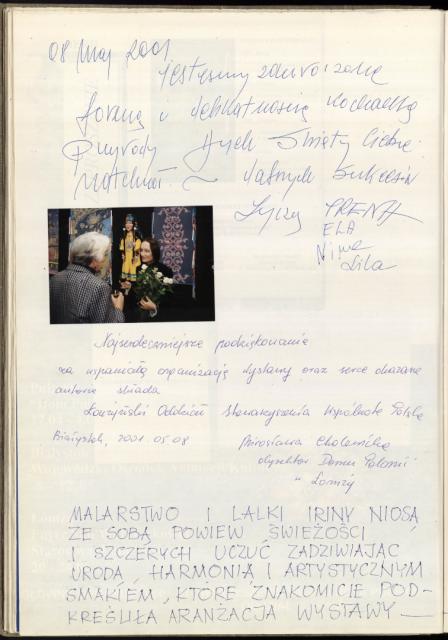 08 Maj 2001
Jesteśmy zauroczone
formą i delikatnością
Przyrody Duch Święty Ciebie
natchnął. ~ dalszych sukcesów
Życzą IRENA
ELA
Nina
Lila
Najserdeczniejsze podziękowania
za wspaniałą organizację wystawy oraz serce okazane
autorce składa
Łomżyński Oddział Stowarzyszenia Wspólnota Polska
Białystok, 2001.05.08
dyrektor Domu Polonii
w Łomży
MALARSTWO I LALKI IRINY NIOSĄ
ZE SOBĄ POWIEW ŚWIEŻOŚCI
I SZCZERYCH UCZUĆ ZADZIWIAJĄC
URODĄ, HARMONIĄ I ARTYSTYCZNYM
SMAKIEM, KTÓRE ZNAKOMICIE POD-
KREŚLIŁA ARANŻACJA WYSTAWY —